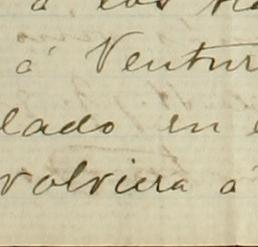 á los
á Ventur
lado en
volviera á